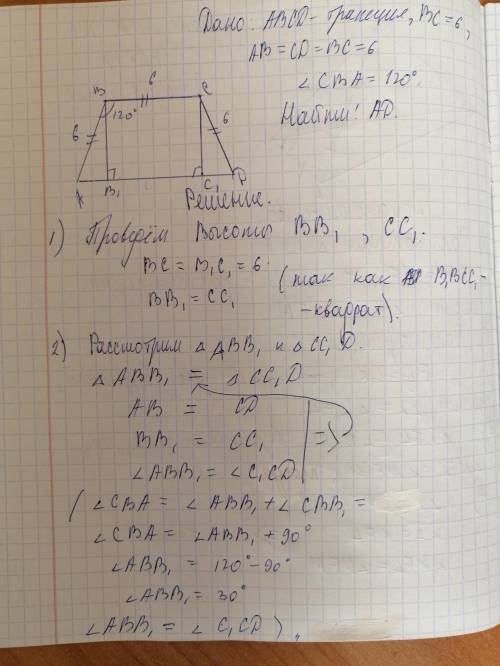 Дано: ABCD - трапеция, BC=6,
AB=CD=BC=6
∠CBA=120°.
Найти: AD.
6
B
C
120°
6
6
A
B₁
C₁
D
Решение.
1) Проведём высоты BB₁, CC₁.
BC = B₁C₁ = 6.
(так как B₁BCC₁-
BB₁ = CC₁
-квадрат).
2) Рассмотрим △ABB₁ и △CC₁D.
△ABB₁ = △CC₁D
AB = CD
BB₁ = CC₁
=>
∠ABB₁ = ∠C₁CD
(∠CBA = ∠ABB₁ + ∠CBB₁ =
∠CBA = ∠ABB₁ + 90°
∠ABB₁ = 120° - 90°
∠ABB₁ = 30°
∠ABB₁ = ∠C₁CD),